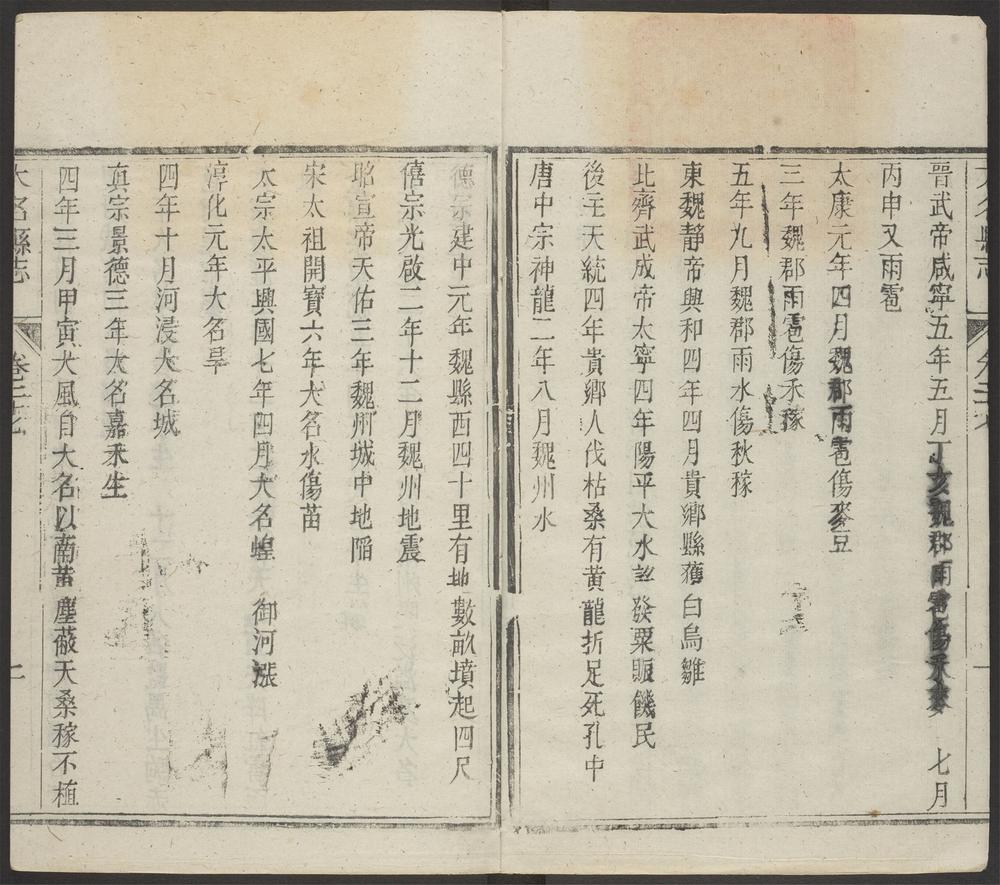 晉武帝咸寧五年五月丁亥魏郡雨雹傷禾麥　七月
丙申又雨雹
太康元年四月魏郡雨雹傷麥豆
三年魏郡雨雹傷禾稼
五年九月魏郡雨水傷秋稼
東魏靜帝興和四年四月貴鄉縣獲白烏雛
北齊武成帝太寧四年陽平大水 發粟賑饑民
後主天統四年貴鄉人伐枯桑有黃龍折足死孔中
唐中宗神龍二年八月魏州水
德宗建中元年魏縣西四十里有地數畝墳起四尺
僖宗光啟二年十二月魏州地震
昭宣帝天佑三年魏州城中地陷
宋太祖開寶六年大名水傷苗
太宗太平興國七年四月大名蝗　御河漲
淳化元年大名旱
四年十月河浸大名城
真宗景德三年大名嘉禾生
四年三月甲寅大風自大名以南黃塵蔽天桑稼不植
大名縣志